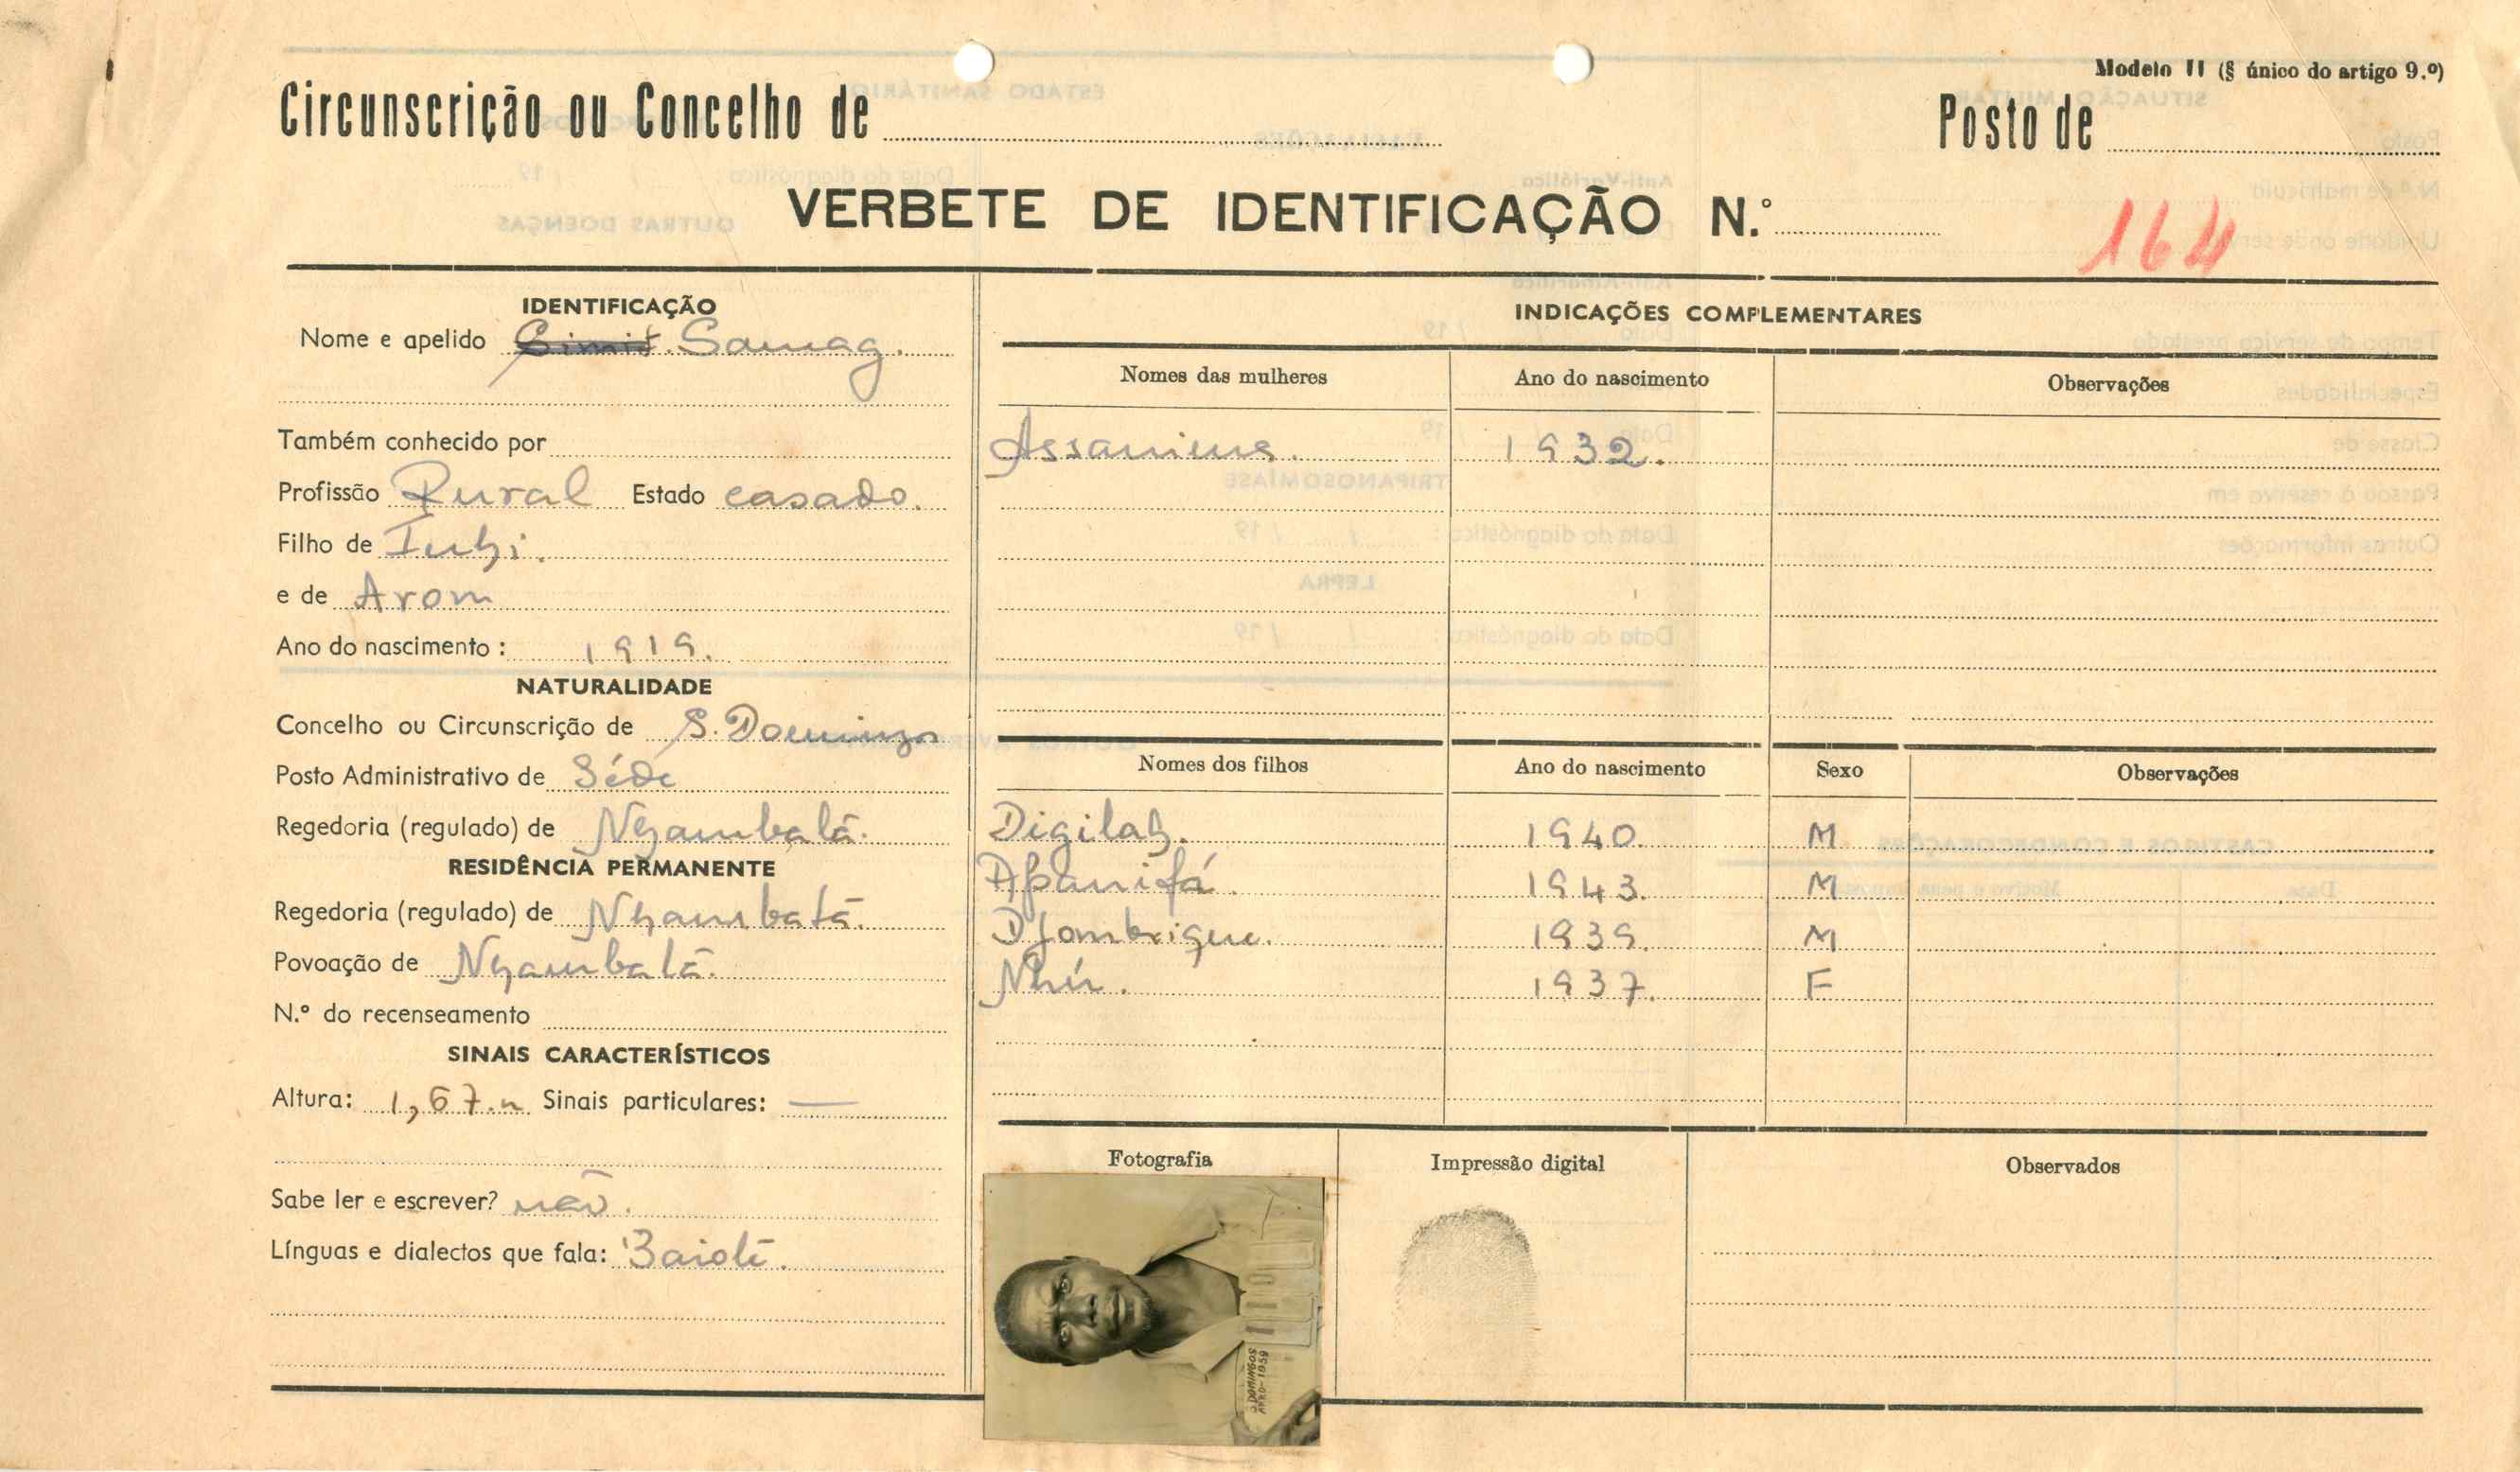 Modelo II (§ único do artigo 9.º)
Circunscrição ou Concelho de
Posto de
VERBETE DE IDENTIFICAÇÃO N.º
164
IDENTIFICAÇÃO
Nome e apelido Samag.
Também conhecido por
Profissão Rural Estado casado.
Filho de
e de Arom
Ano do nascimento: 1919.
NATURALIDADE
Concelho ou Circunscrição de S. Domingos
Posto Administrativo de Séde
Regedoria (regulado) de Nhambalã.
RESIDÊNCIA PERMANENTE
Regedoria (regulado) de Nhambalã.
Povoação de Nhambalã.
N.º do recenseamento
SINAIS CARACTERÍSTICOS
Altura: 1,67.m Sinais particulares: —
Sabe ler e escrever? não.
Línguas e dialectos que fala: Baiote.
INDICAÇÕES COMPLEMENTARES
Nomes das mulheres Ano do nascimento Observações
1932.
Nomes dos filhos Ano do nascimento Sexo Observações
1940. M
Apanifá. 1943. M
Djombrigue. 1939. M
1937. F
Fotografia Impressão digital Observados
S. DOMINGOS
1959